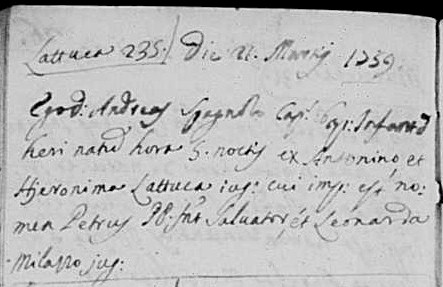 Lattuca 235. Die 21. Martij 1759
Ego D: Andreas Spagnolo Cap: bap: Infantē
heri natū hora 5. noctis ex Antonino et
Hieronima Lattuca iug: cui imp: est no:
men Petrus PP: fnt Salvator et Leonarda
Milazzo jug: